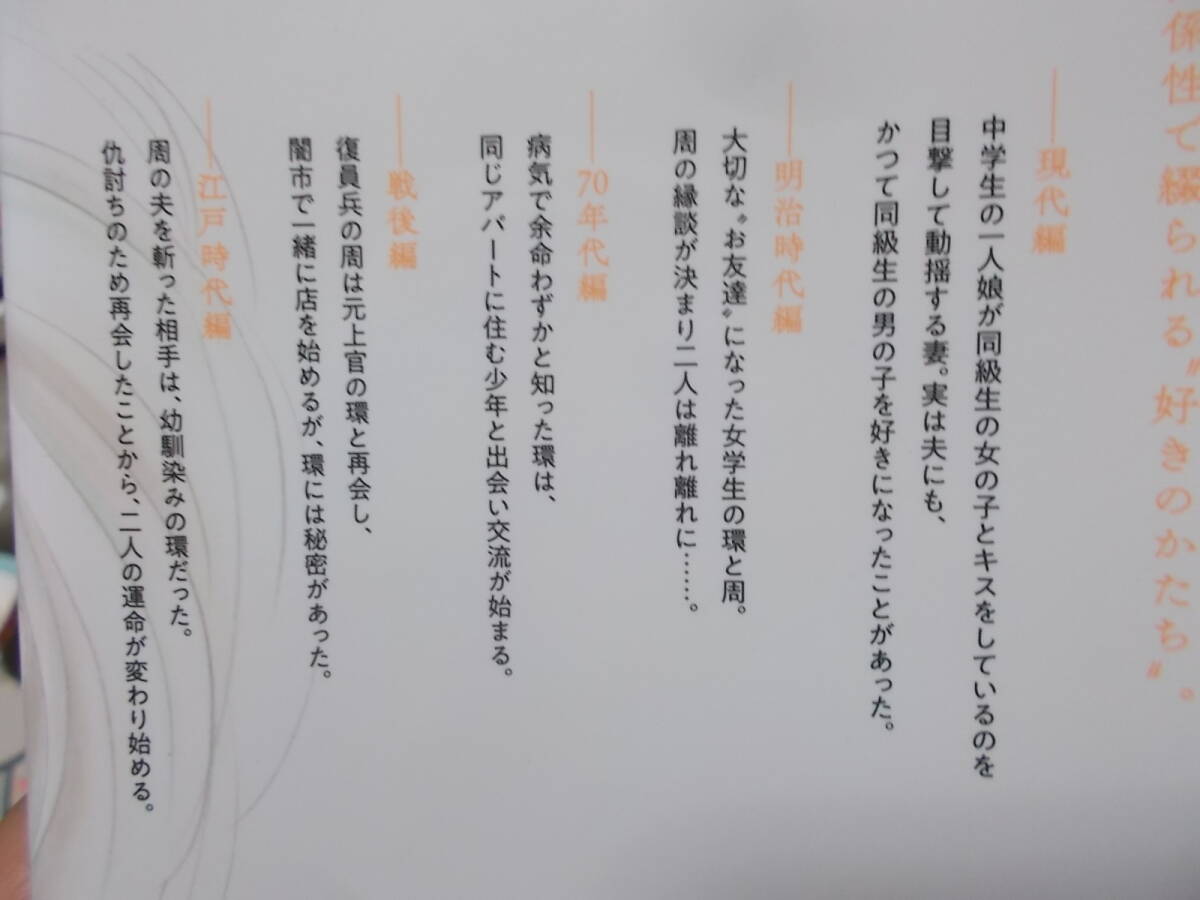 係性で綴られる〝好きのかたち〟。
――現代編
中学生の一人娘が同級生の女の子とキスをしているのを
目撃して動揺する妻。実は夫にも、
かつて同級生の男の子を好きになったことがあった。
――明治時代編
大切な〝お友達〟になった女学生の環と周。
周の縁談が決まり二人は離れ離れに……。
――70年代編
病気で余命わずかと知った環は、
同じアパートに住む少年と出会い交流が始まる。
――戦後編
復員兵の周は元上官の環と再会し、
闇市で一緒に店を始めるが、環には秘密があった。
――江戸時代編
周の夫を斬った相手は、幼馴染みの環だった。
仇討ちのため再会したことから、二人の運命が変わり始める。